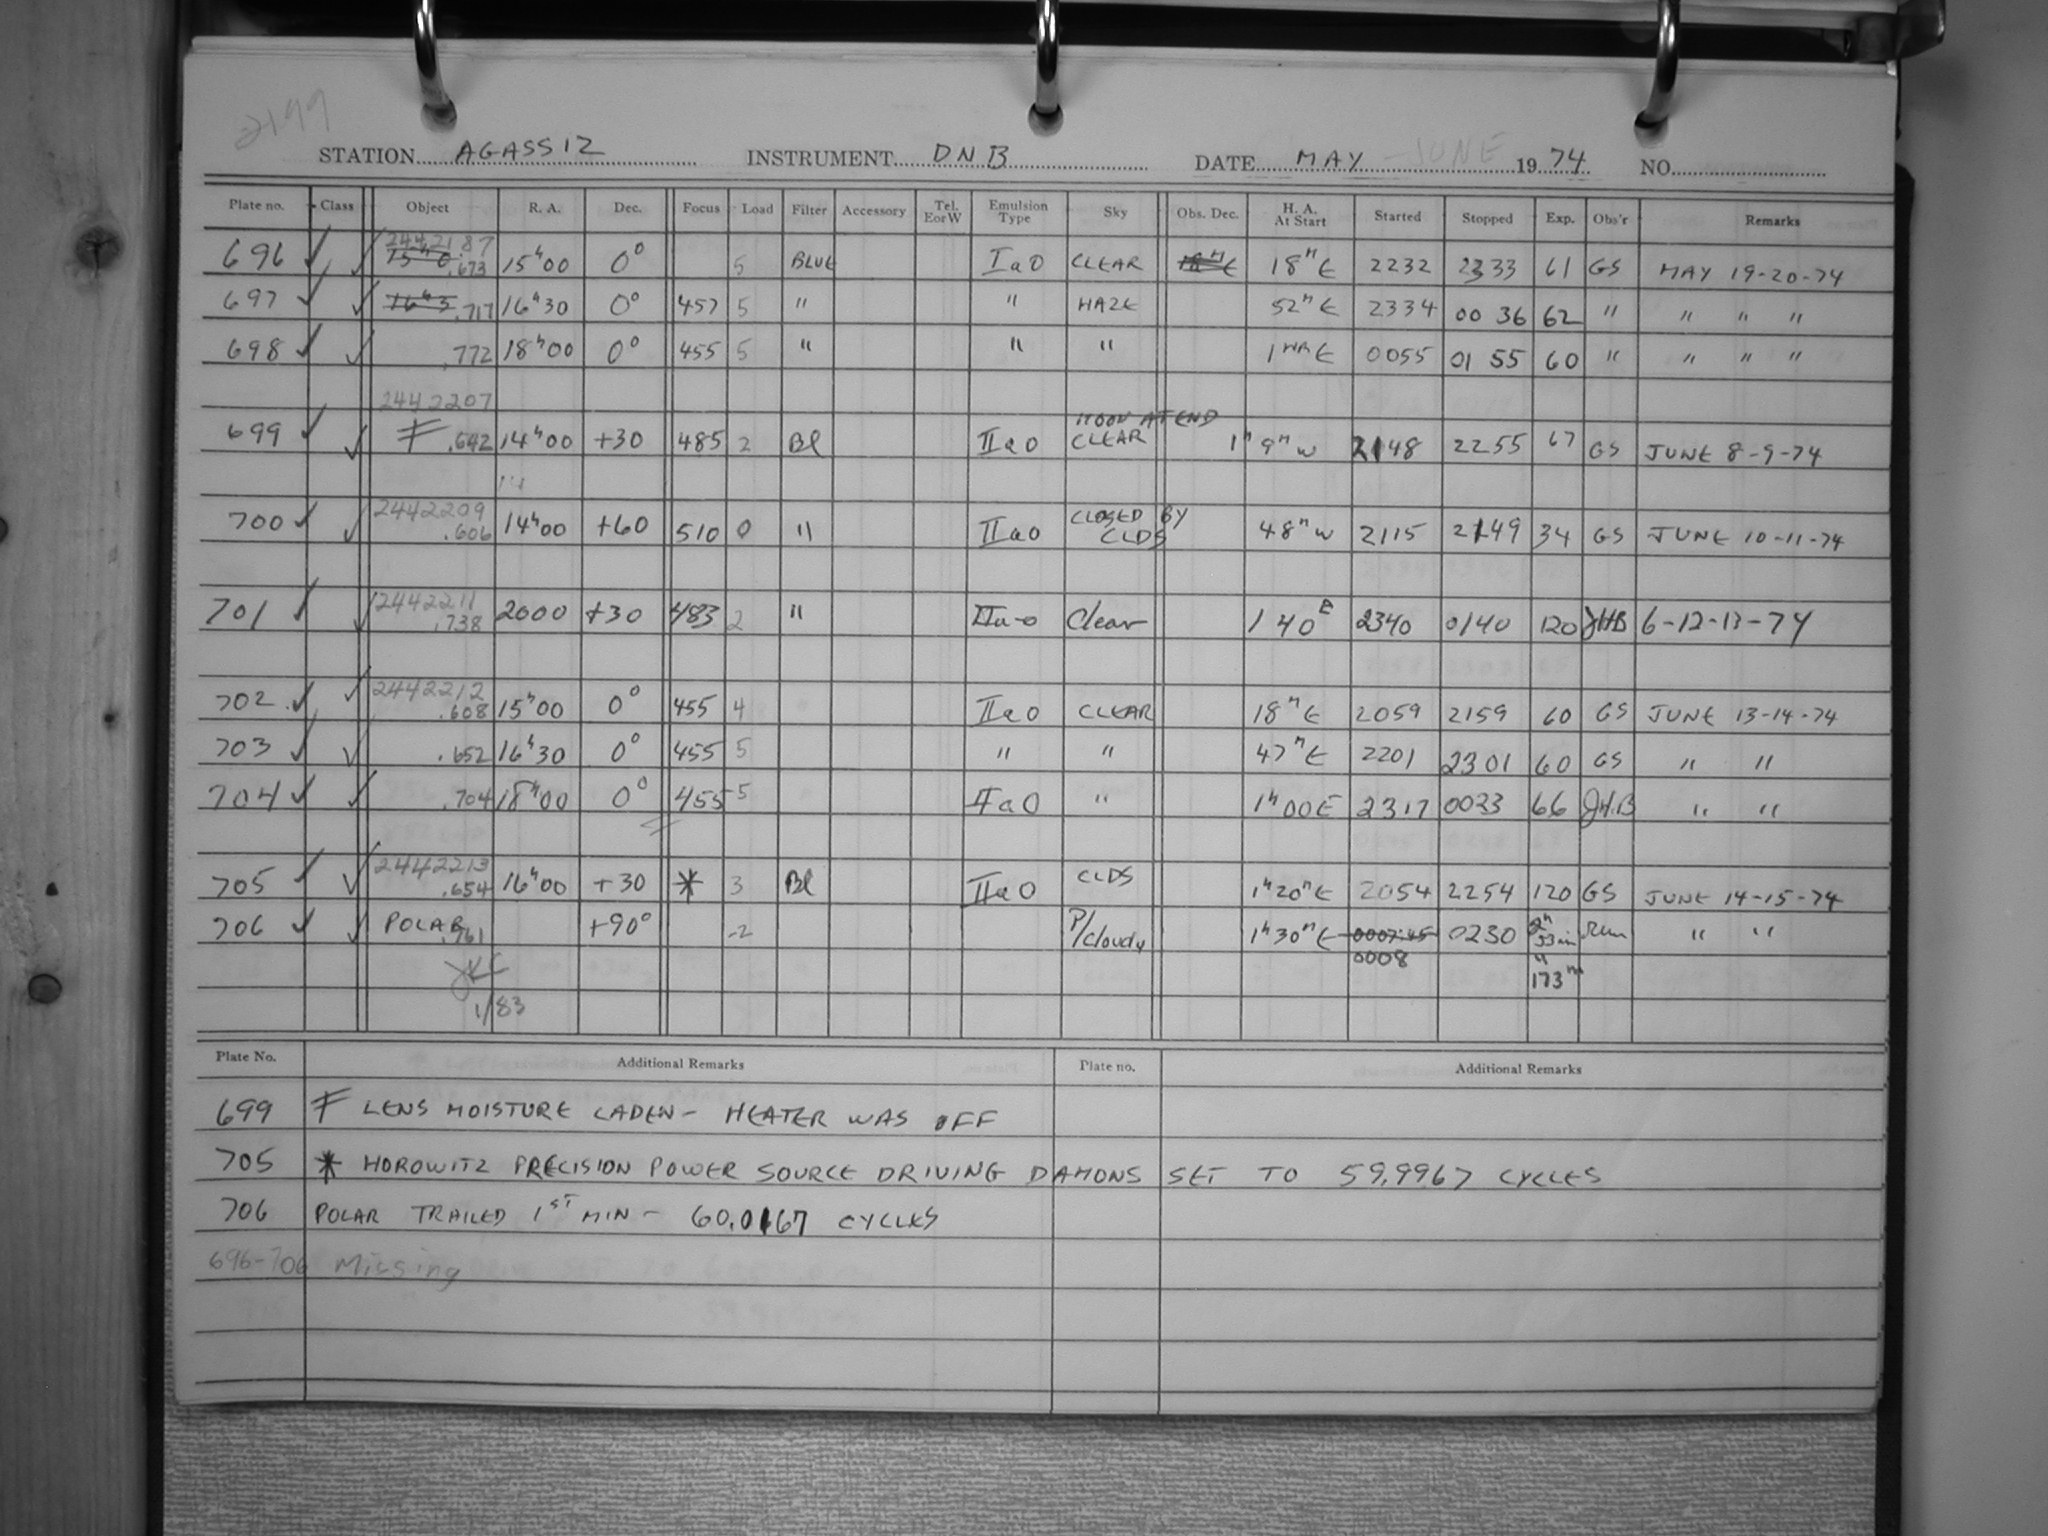 2199
STATION AGASSIZ INSTRUMENT DNB DATE MAY - JUNE 1974 NO.
Plate no. Class Object R. A. Dec. Focus Load Filter Accessory Tel. E or W Emulsion Type Sky Obs. Dec. H. A. At Start Started Stopped Exp. Obs'r Remarks
2442187
696 ✓ ✓ .673 15ʰ00 0° 5 BLUE IIaO CLEAR 18ᵐE 2232 2333 61 GS MAY 19-20-74
697 ✓ ✓ 16ʰ5 .717 16ʰ30 0° 457 5 " " HAZE 52ᵐE 2334 00 36 62 " " " "
698 ✓ ✓ .772 18ʰ00 0° 455 5 " " " 1ᴴᴿE 0055 01 55 60 " " " "
2442207 MOON AT END
699 ✓ ✓ Ŧ .642 14ʰ00 +30 485 2 Bl IIaO CLEAR 1ʰ 9ᵐW 2148 2255 67 GS JUNE 8-9-74
14
2442209 CLOSED BY
700 ✓ ✓ .606 14ʰ00 +60 510 0 " IIaO CLDS 48ᵐW 2115 2149 34 GS JUNE 10-11-74
2442211
701 ✓ ✓ .738 2000 +30 483 2 " IIa-O Clear 1 40ᴱ 2340 0140 120 JHB 6-12-13-74
2442212
702 ✓ ✓ .608 15ʰ00 0° 455 4 IIaO CLEAR 18ᵐE 2059 2159 60 GS JUNE 13-14-74
703 ✓ ✓ .652 16ʰ30 0° 455 5 " " 47ᵐE 2201 2301 60 GS " "
704 ✓ ✓ .704 18ʰ00 0° 455 5 IIaO " 1ʰ00E 2317 0023 66 JH.B " "
2442213
705 ✓ ✓ .654 16ʰ00 +30 * 3 Bl IIaO CLDS 1ʰ20ᵐE 2054 2254 120 GS JUNE 14-15-74
706 ✓ ✓ POLAR .761 +90° -2 P/cloudy 1ʰ30ᵐE 0007:45 0230 " "
0008 173ᵐ
1/83
Plate No. Additional Remarks Plate no. Additional Remarks
699 Ŧ LENS MOISTURE LADEN - HEATER WAS OFF
705 * HOROWITZ PRECISION POWER SOURCE DRIVING DAMONS SET TO 59.9967 CYCLES
706 POLAR TRAILED 1ST MIN - 60.0167 CYCLES
696-706 Missing